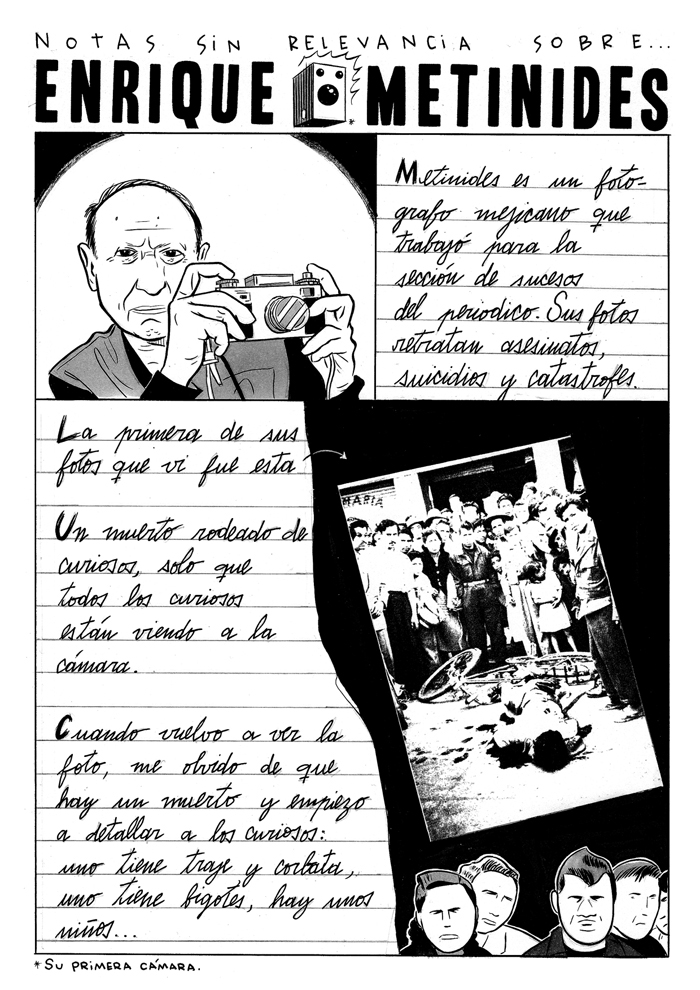 NOTAS SiN RELEVANCiA SOBRE...
ENRIQUE METINIDES
*
Metinides es un foto-
grafo mejicano que
trabajó para la
sección de sucesos
del periodico. Sus fotos
retratan asesinatos,
suicidios y catastrofes.
La primera de sus
fotos que vi fue esta
MARIA
Un muerto rodeado de
curiosos, solo que
todos los curiosos
están viendo a la
cámara.
Cuando vuelvo a ver la
foto, me olvido de que
hay un muerto y empiezo
a detallar a los curiosos:
uno tiene traje y corbata,
uno tiene bigotes, hay unos
niños...
*SU PRIMERA CÁMARA.